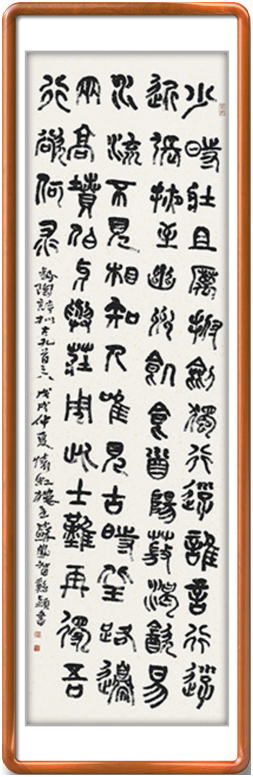 少時壯且厲撫劍獨行遊誰言行遊
近張掖至幽州飢食首陽薇渴飲易
水流不見相知人唯見古時丘路邊
兩高墳伯牙與莊周此士難再得吾
行欲何求
陶詩擬古九首之八戊戌仲夏紅樓主蘇書